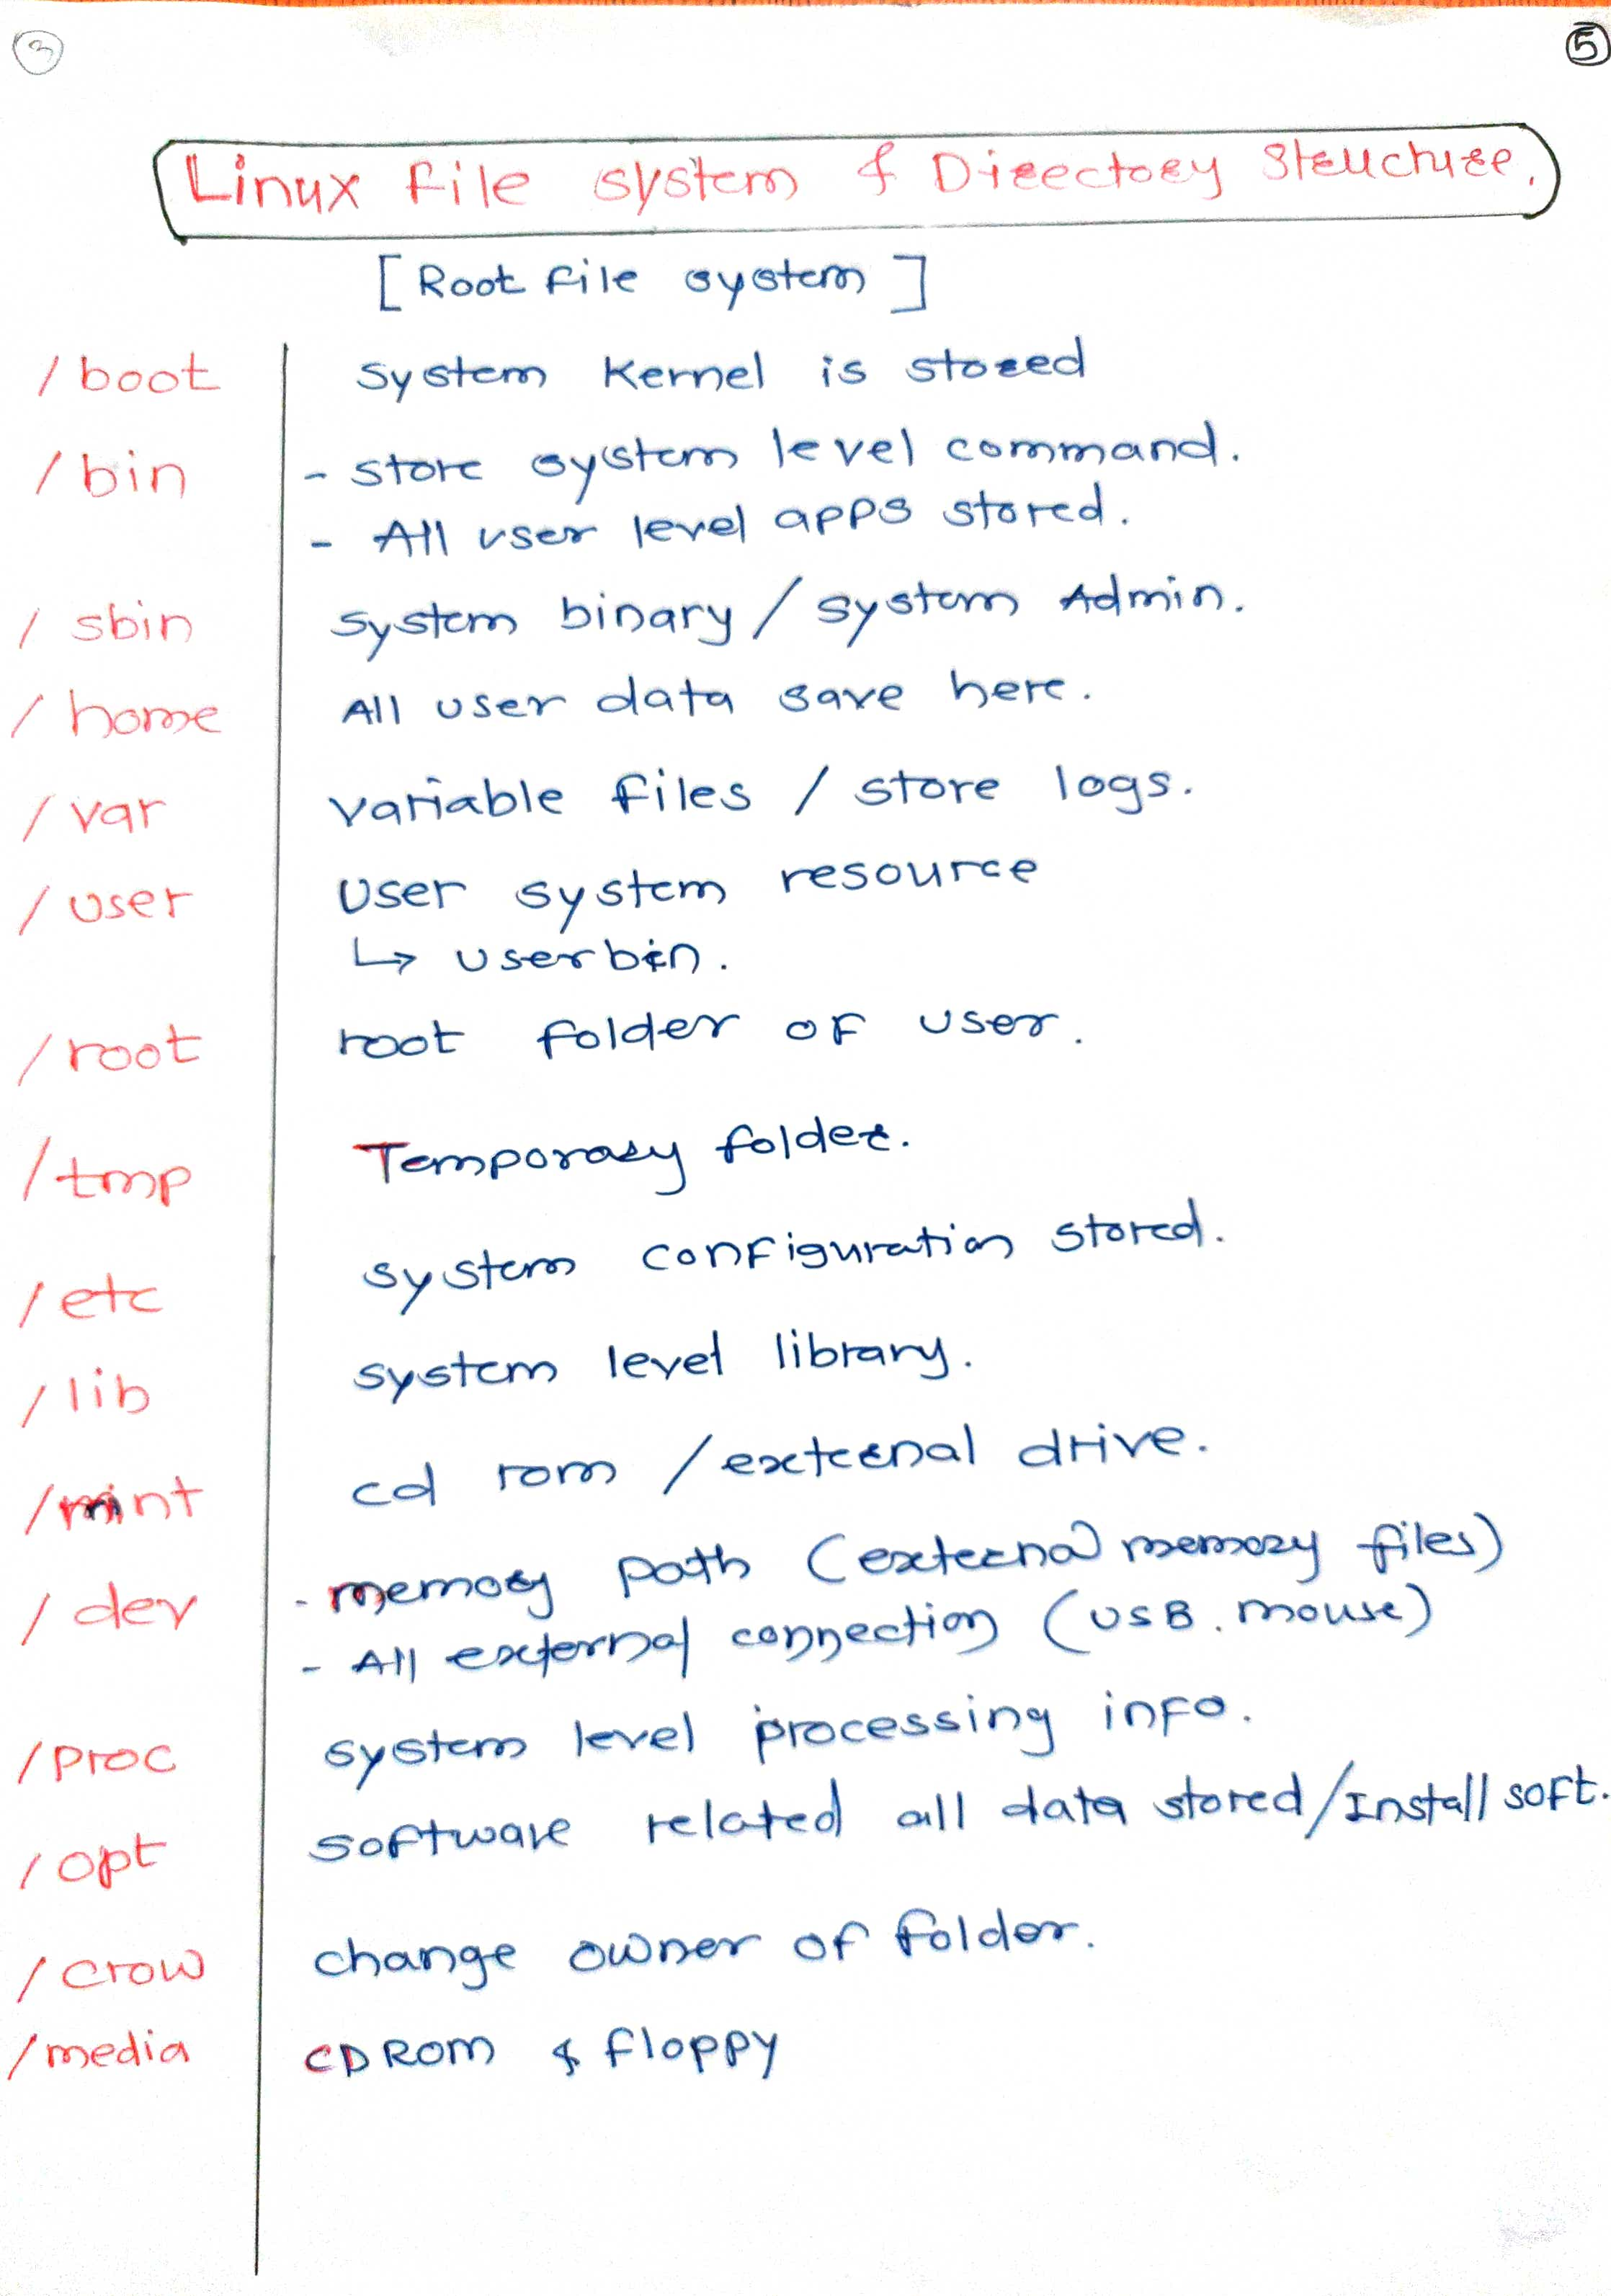 3
5
Linux File system & Directory Structure.
[Root File system]
/boot system Kernel is stored
/bin - store system level command.
- All user level apps stored.
/sbin system binary / system Admin.
/home All user data save here.
/var variable files / store logs.
/user User system resource
↳ userbin.
/root root folder of user.
/tmp Temporary folder.
/etc system configuration stored.
/lib system level library.
/mint cd rom / external drive.
/dev - memory path (external memory files)
- All external connection (USB. mouse)
/proc system level processing info.
/opt software related all data stored/Install soft.
/crow change owner of folder.
/media CDROM & floppy